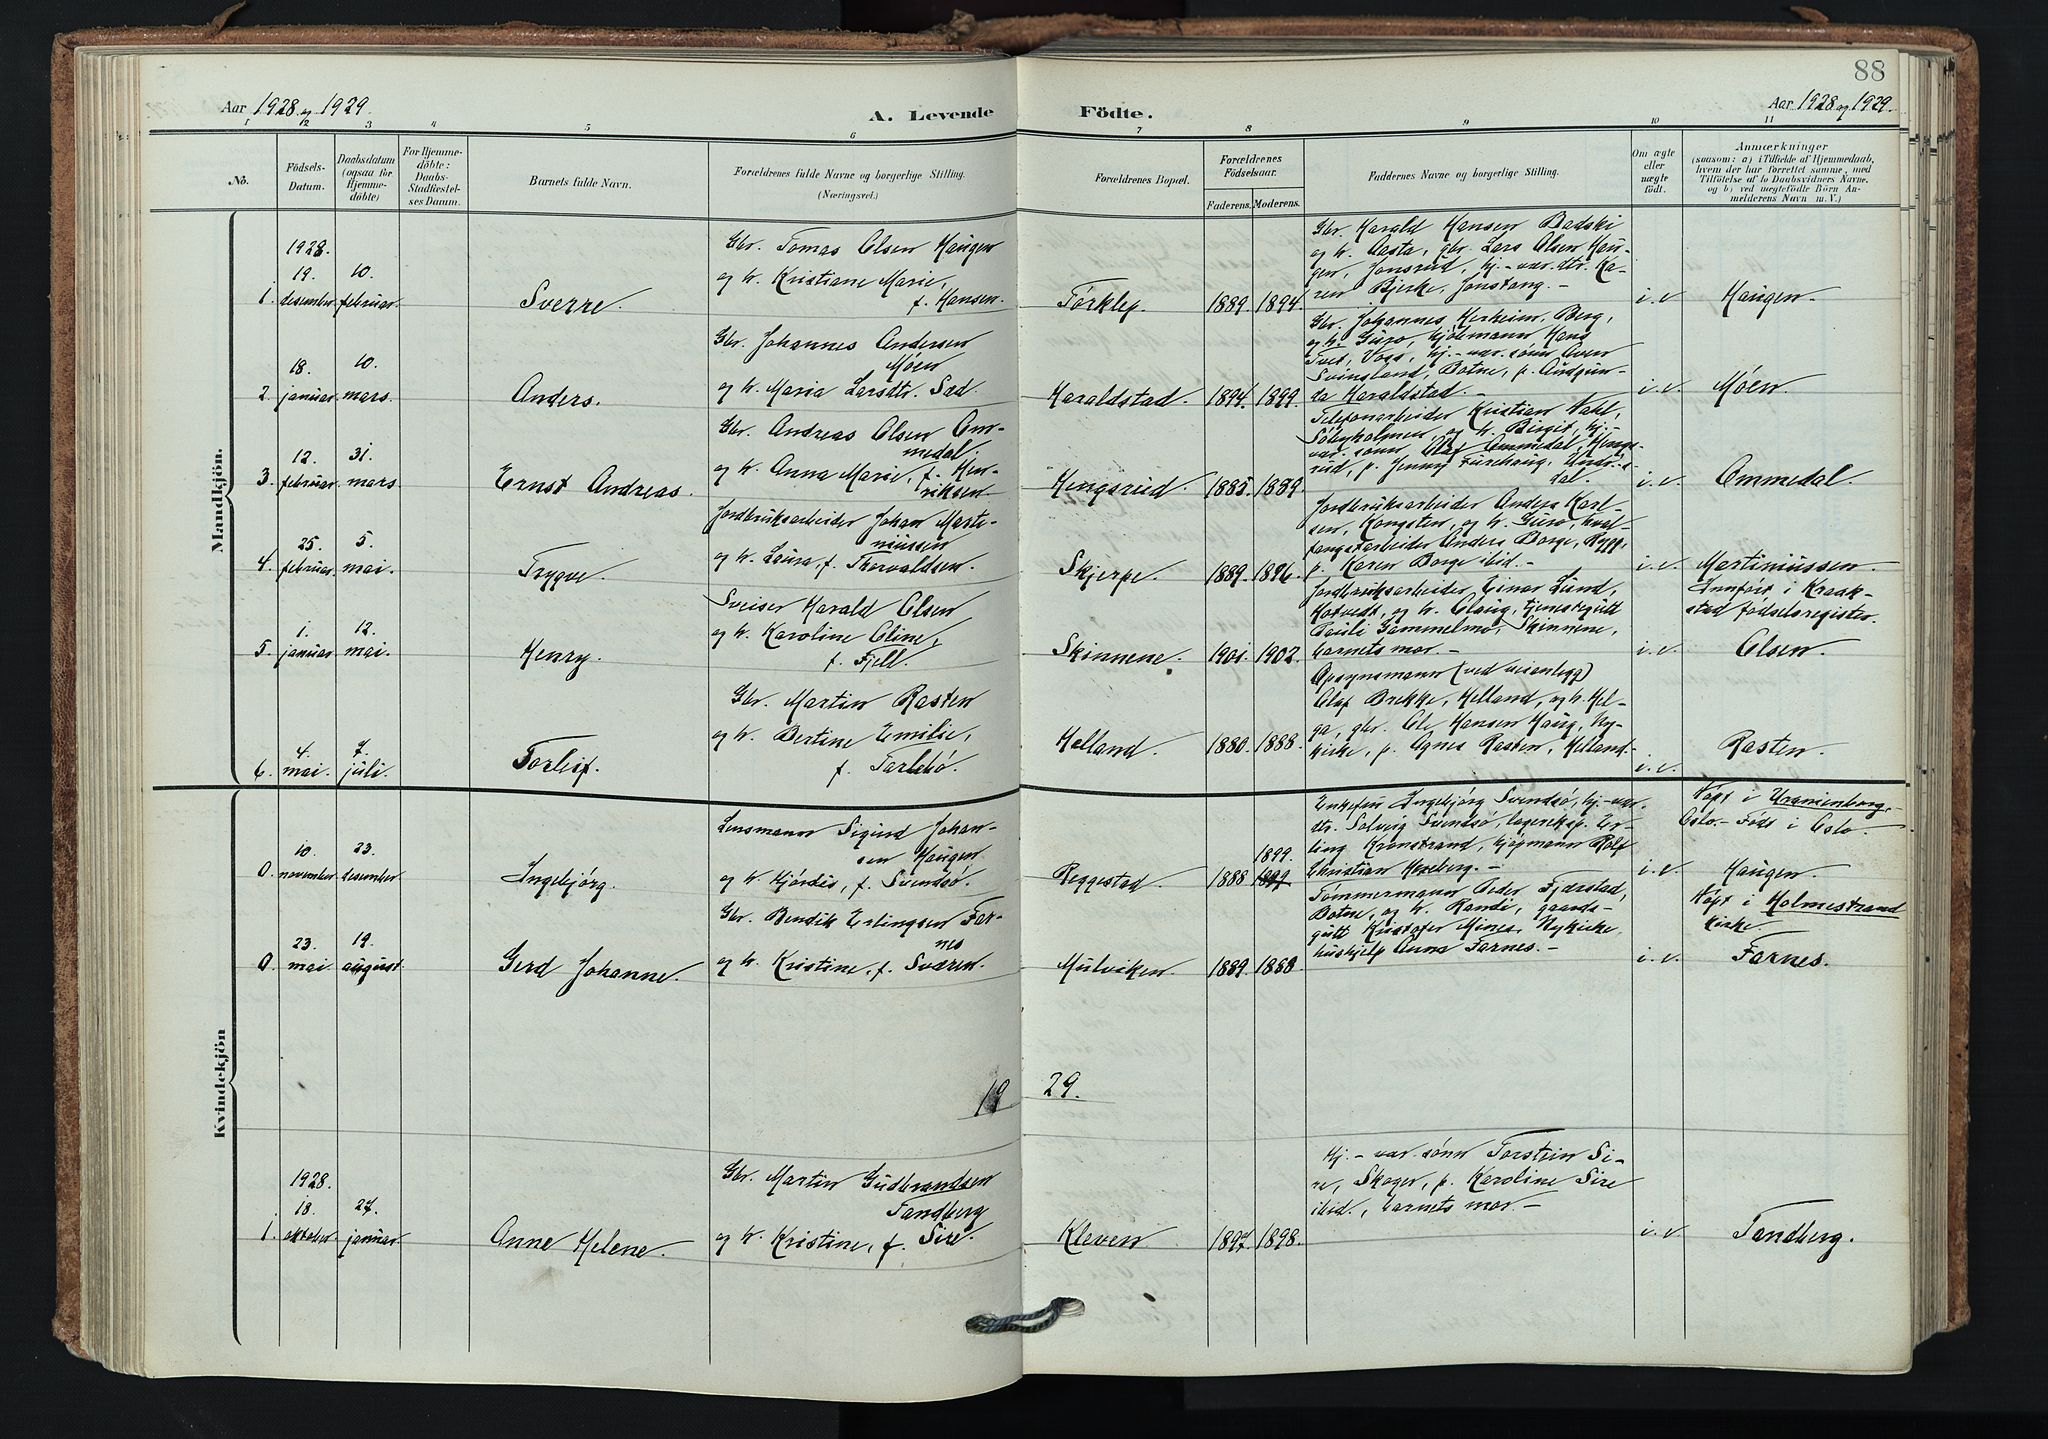 88
Aar 1928 og 1929.
A. Levende Födte.
Aar 1928 og 1929.
1 2 3 4 5 6 7 8 9 10 11
No.
Födsels-
Datum.
Daabsdatum
(ogsaa for
Hjemme-
döbte)
For Hjemme-
döbte:
Daabs-
Stadfæstel-
ses Datum.
Barnets fulde Navn.
Forældrenes fulde Navne og borgerlige Stilling.
(Næringsvei.)
Forældrenes Bopæl.
Forældrenes
Födselsaar.
Faderens. Moderens.
Faddernes Navne og borgerlige Stilling.
Om ægte
eller
uægte
födt.
Anmærkninger
(saasom: a) i Tilfælde af Hjemmedaab,
hvem der har forrettet samme, med
Tilföielse af to Daabsvidners Navne,
og b) ved uegtefödte Börn An-
melderens Navn m. V.)
Mandkjön.
1928.
19. 10.
1. desember. februar.
Sverre.
Gbr. Tomas Olsen Haugen
og h. Kristiane Marie,
f. Hansen.
Torklep. 1889. 1894.
Gbr. Harald Hansen Badski
og h. Aasta, gbr. Lars Olsen Hau-
gen, Jonsrud, hj.-vær. dtr. Ka-
ren Bjerke, Jonstang.-
i. e. Haugen.
18. 10.
2. januar. mars.
Anders.
Gbr. Johannes Andersen
Møen
og h. Maria Larsdtr. Sæd.
Haraldstad. 1894. 1899.
Gbr. Johannes Herheim, Berg,
og h. Guro, kjøbmann Hans
Tveit, Voss, hj.-vær. sønn Aven
Svinsland, Botne, p. Gudrun-
da Haraldstad.-
i. e. Møen.
12. 31.
3. februar. mars
Ernst Andreas.
Gbr. Andreas Olsen Om-
medal
og h. Anna Marie, f. Hen-
riksen
Hengsrud. 1885. 1889.
Telefonarbeider Kristian Vahl,
Søbyholmen og h. Birgit, hj.-
vær. sønn Olaf Ommedal, Hengs-
rud, p. Jenny Furehaug, Undr-
dal.
i. e. Ommedal.
25. 5.
4. februar. mai.
Trygve.
Jordbruksarbeider Johan Marti-
niussen
og h. Laura, f. Thorvaldsen.
Skjerpe. 1889. 1896.
Jordbruksarbeider Anders Karl-
sen, Kongsten, og h. Guro, hval-
fangstarbeider Anders Borge, Rygg,
p. Karen Borge ibid.-
i. e. Martiniussen.
1. 12.
5. januar mai.
Henry.
Sveiser Harald Olsen
og h. Karoline Oline,
f. Fjell.
Skinnene. 1901. 1902.
Jordbruksarbeider Einar Lund,
Hotvedt, og h. Olaug, tjenestegutt
Pauli Gammelmo, Skinnene,
barnets mor.-
i. e.
Innført i Kraak-
stad fødselsregister.
Olsen.
4. 7.
6. mai. juli.
Torleif.
Gbr. Martin Rasten
og h. Bertine Emilie,
f. Tarlebø.
Helland. 1880. 1888.
Opsynsmann (ved veianlegg)
Olaf Brekke, Helland, og h. Hel-
ga, gbr. Ole Hansen Haug, Ny-
kirke, p. Agnes Rasten, Helland.-
i. e. Rasten.
Kvindekjön
10. 23.
0. november desember
Ingebjørg.
Lensmann Sigurd Johan-
sen Haugen
og h. Hjørdis, f. Svendsø.
Reggestad. 1888 1899.
Enkefru Ingebjørg Svendsø, hj.-vær.
dtr. Solveig Svendsø, lagereksp. Er-
ling Kronstrand, kjøpmann Rolf
Christian Hexeberg.-
i. e.
Døpt i Uranienborg,
Oslo.- Født i Oslo.-
Haugen.
23. 19.
0. mai. august.
Gerd Johanne.
Gbr. Bendik Erlingsen Far-
nes
og h. Kristine, f. Sværen.
Mulviken. 1889. 1888.
Tømmermann Peder Fjærstad,
Botne, og h. Randi, gaards-
gutt Kristofer Mines, Nykirke,
hushjelp Anna Farnes.-
i. e.
Døpt i Holmestrand
kirke.
Farnes.
19 29.
1928.
18. 27.
1. oktober. januar
Anne Helene.
Gbr. Martin Gudbrandsen
Tandberg
og h. Kristine, f. Sire.
Kleven. 1897. 1898.
Hj.-vær. sønn Torstein Si-
re, Skoger, p. Karoline Sire
ibid., barnets mor.-
i. e. Tandberg.